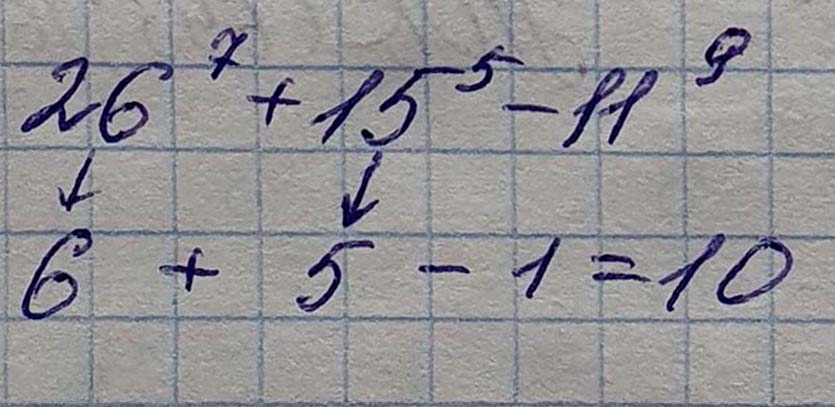 26⁷ + 15⁵ - 11⁹
6 + 5 - 1 = 10